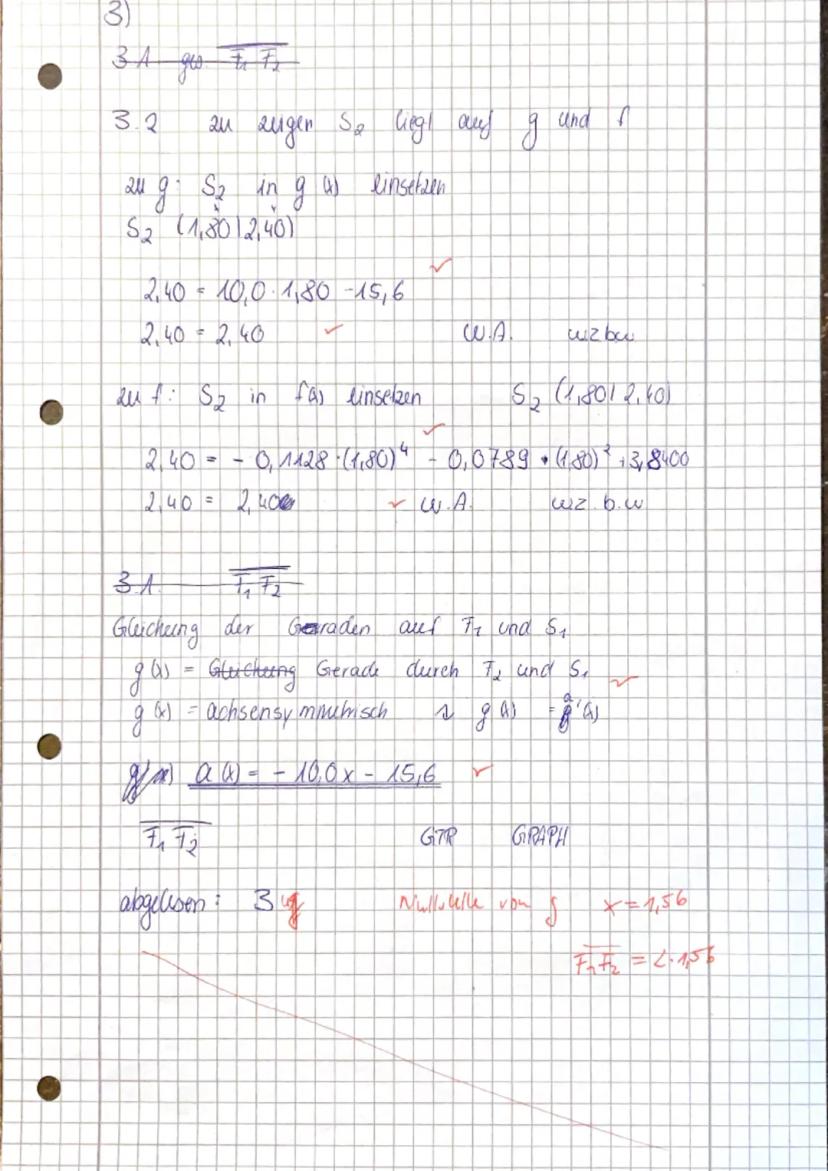 3)
3.1 ges. F₁ F₂
3.2 zu zeigen S₂ liegt auf g und f
zu g: S₂ in g(x) einsetzen
S₂ (1,80|2,40)
2,40 = 10,0 · 1,80 - 15,6 ✓
2,40 = 2,40 ✓ W.A. wzbw
zu f: S₂ in f(x) einsetzen S₂ (1,80|2,40)
2,40 = - 0,1128 · (1,80)⁴ - 0,0789 · (1,80)² + 3,8400 ✓
2,40 = 2,40 ✓ W.A. wz.b.w
3.1. F₁ F₂
Gleichung der Geraden auf F₁ und S₁
g(x) = Gleichung Gerade durch F₂ und S₂ ✓
g(x) = achsensymmetrisch g(x) = a(x)
a(x) = - 10,0x - 15,6 ✓
F₁ F₂ GTR GRAPH
abgelesen: 3 Nullstelle von g x = 1,56
F₁F₂ = 2·1,56